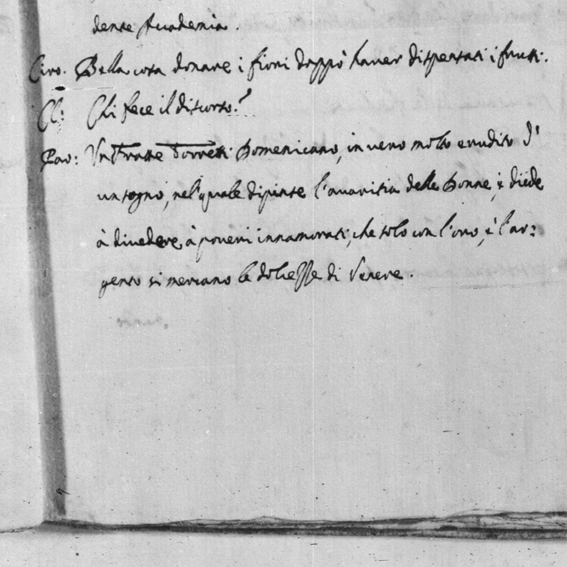 dente Academia.
Ciro. Bella cosa donare i fiori doppò haver dispensati i frutti.
Cl: Chi fece il discorso?
Pao: Un Frate Domenicano, in vero molto erudito d'
un sogno, nel quale dipinse l'avaritia delle Donne, e diede
à divedere à poveri innamorati, che solo con l'oro, e l'ar:
gento si mercano le dolcesse di Venere.